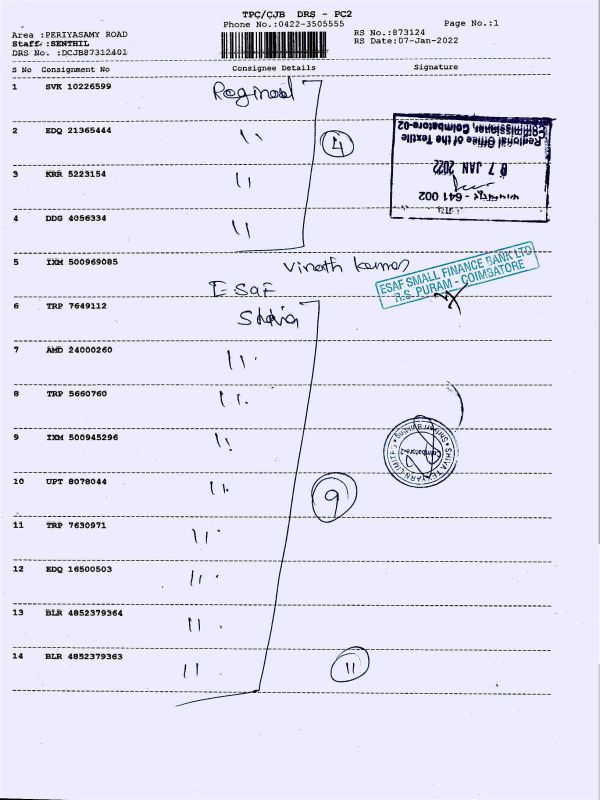 TPC/CJB DRS - PC2
Phone No.:0422-3505555
Page No.:1
Area :PERIYASAMY ROAD
RS No.:873124
Staff :SENTHIL
RS Date:07-Jan-2022
DRS No. :DCJB87312401
S No Consignment No Consignee Details Signature
1 SVK 10226599
2 EDQ 21365444 11
4
Regional Office of the Textile
Commissioner, Coimbatore-02
07 JAN 2022
641 002
3 KRR 5223154 11
4 DDG 4056334 11
5 IXM 500969085 Vinoth Kumar
ESAF SMALL FINANCE BANK LTD
R.S. PURAM - COIMBATORE
ESAF
6 TRP 7649112 Shiva
7 AMD 24000260 11
8 TRP 5660760 11
9 IXM 500945296 11
SHIVA TEXYARN LIMITED
Coimbatore-2
10 UPT 8078044 11
9
11 TRP 7630971 11
12 EDQ 16500503 11
13 BLR 4852379364 11
14 BLR 4852379363 11
11